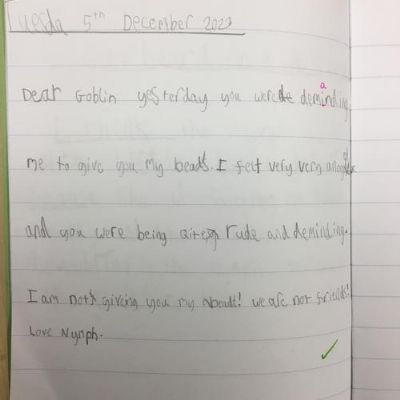 Tuesda 5th December 2023
Dear Goblin yesterday you were deminding
a
me to give you my beads. I felt very very
and you were being rude and deminding.
I am not giving you my beads! we are not friends!
Love Nymph.